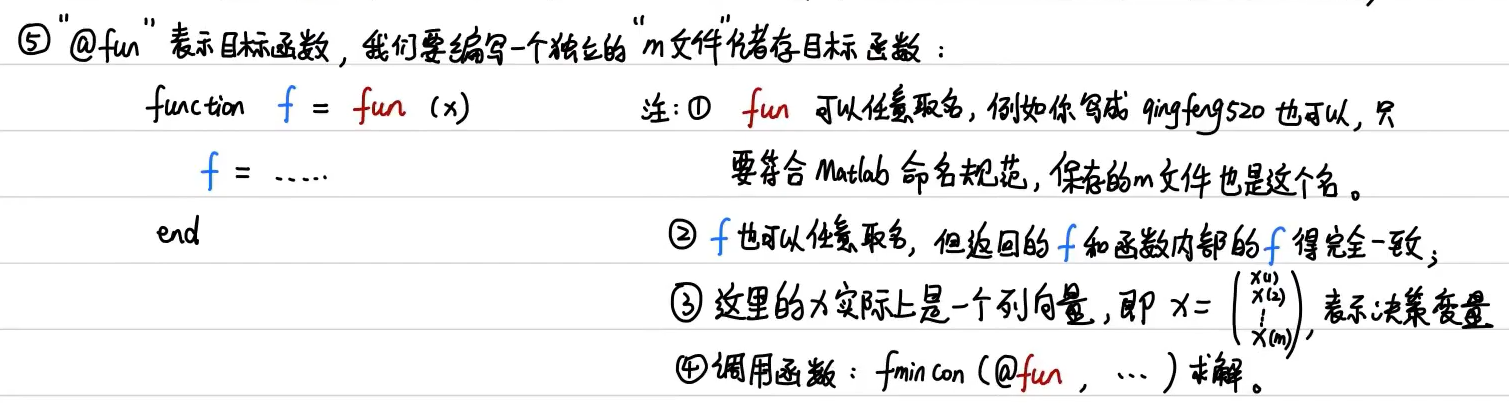 ⑤ "@fun" 表示目标函数，我们要编写一个独立的"m文件"储存目标函数：
function f = fun (x)
f = ......
end
注：① fun 可以任意取名，例如你写成 qingfeng520 也可以，只
要符合 Matlab 命名规范，保存的m文件也是这个名。
② f 也可以任意取名，但返回的 f 和函数内部的 f 得完全一致；
③ 这里的x实际上是一个列向量，即 x = (x(1) x(2) ⋮ x(m))，表示决策变量
④ 调用函数：fmincon (@fun , ... ) 求解。